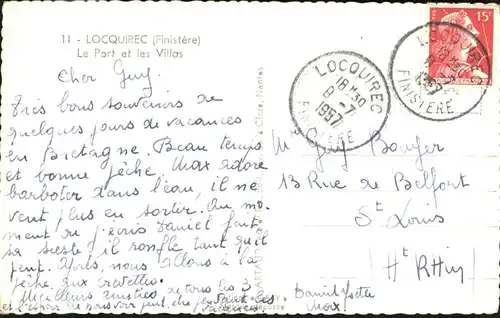 11 - LOCQUIREC (Finistère)
Le Port et les Villas
Cher Guy
Très bons souvenirs de
quelques jours de vacances
en Bretagne. Beau temps
et bonne pêche, Max adore
barboter dans l'eau, il ne
veut plus en sortir. Au mo-
ment où j'écris Daniel fait
sa sieste il ronfle tant qu'il
peut. Après, nous allons à la
pêche aux crevettes.
Meilleurs amitiés de tous les 3
et espoir de nous voir
LOCQUIREC
18H30
8-7
1957
FINISTÈRE
15F
LOCQUIREC
1957
FINISTÈRE
M Guy Bouyer
13 Rue de Belfort
St Louis
Ht RHin
Daniel Yvette
Max